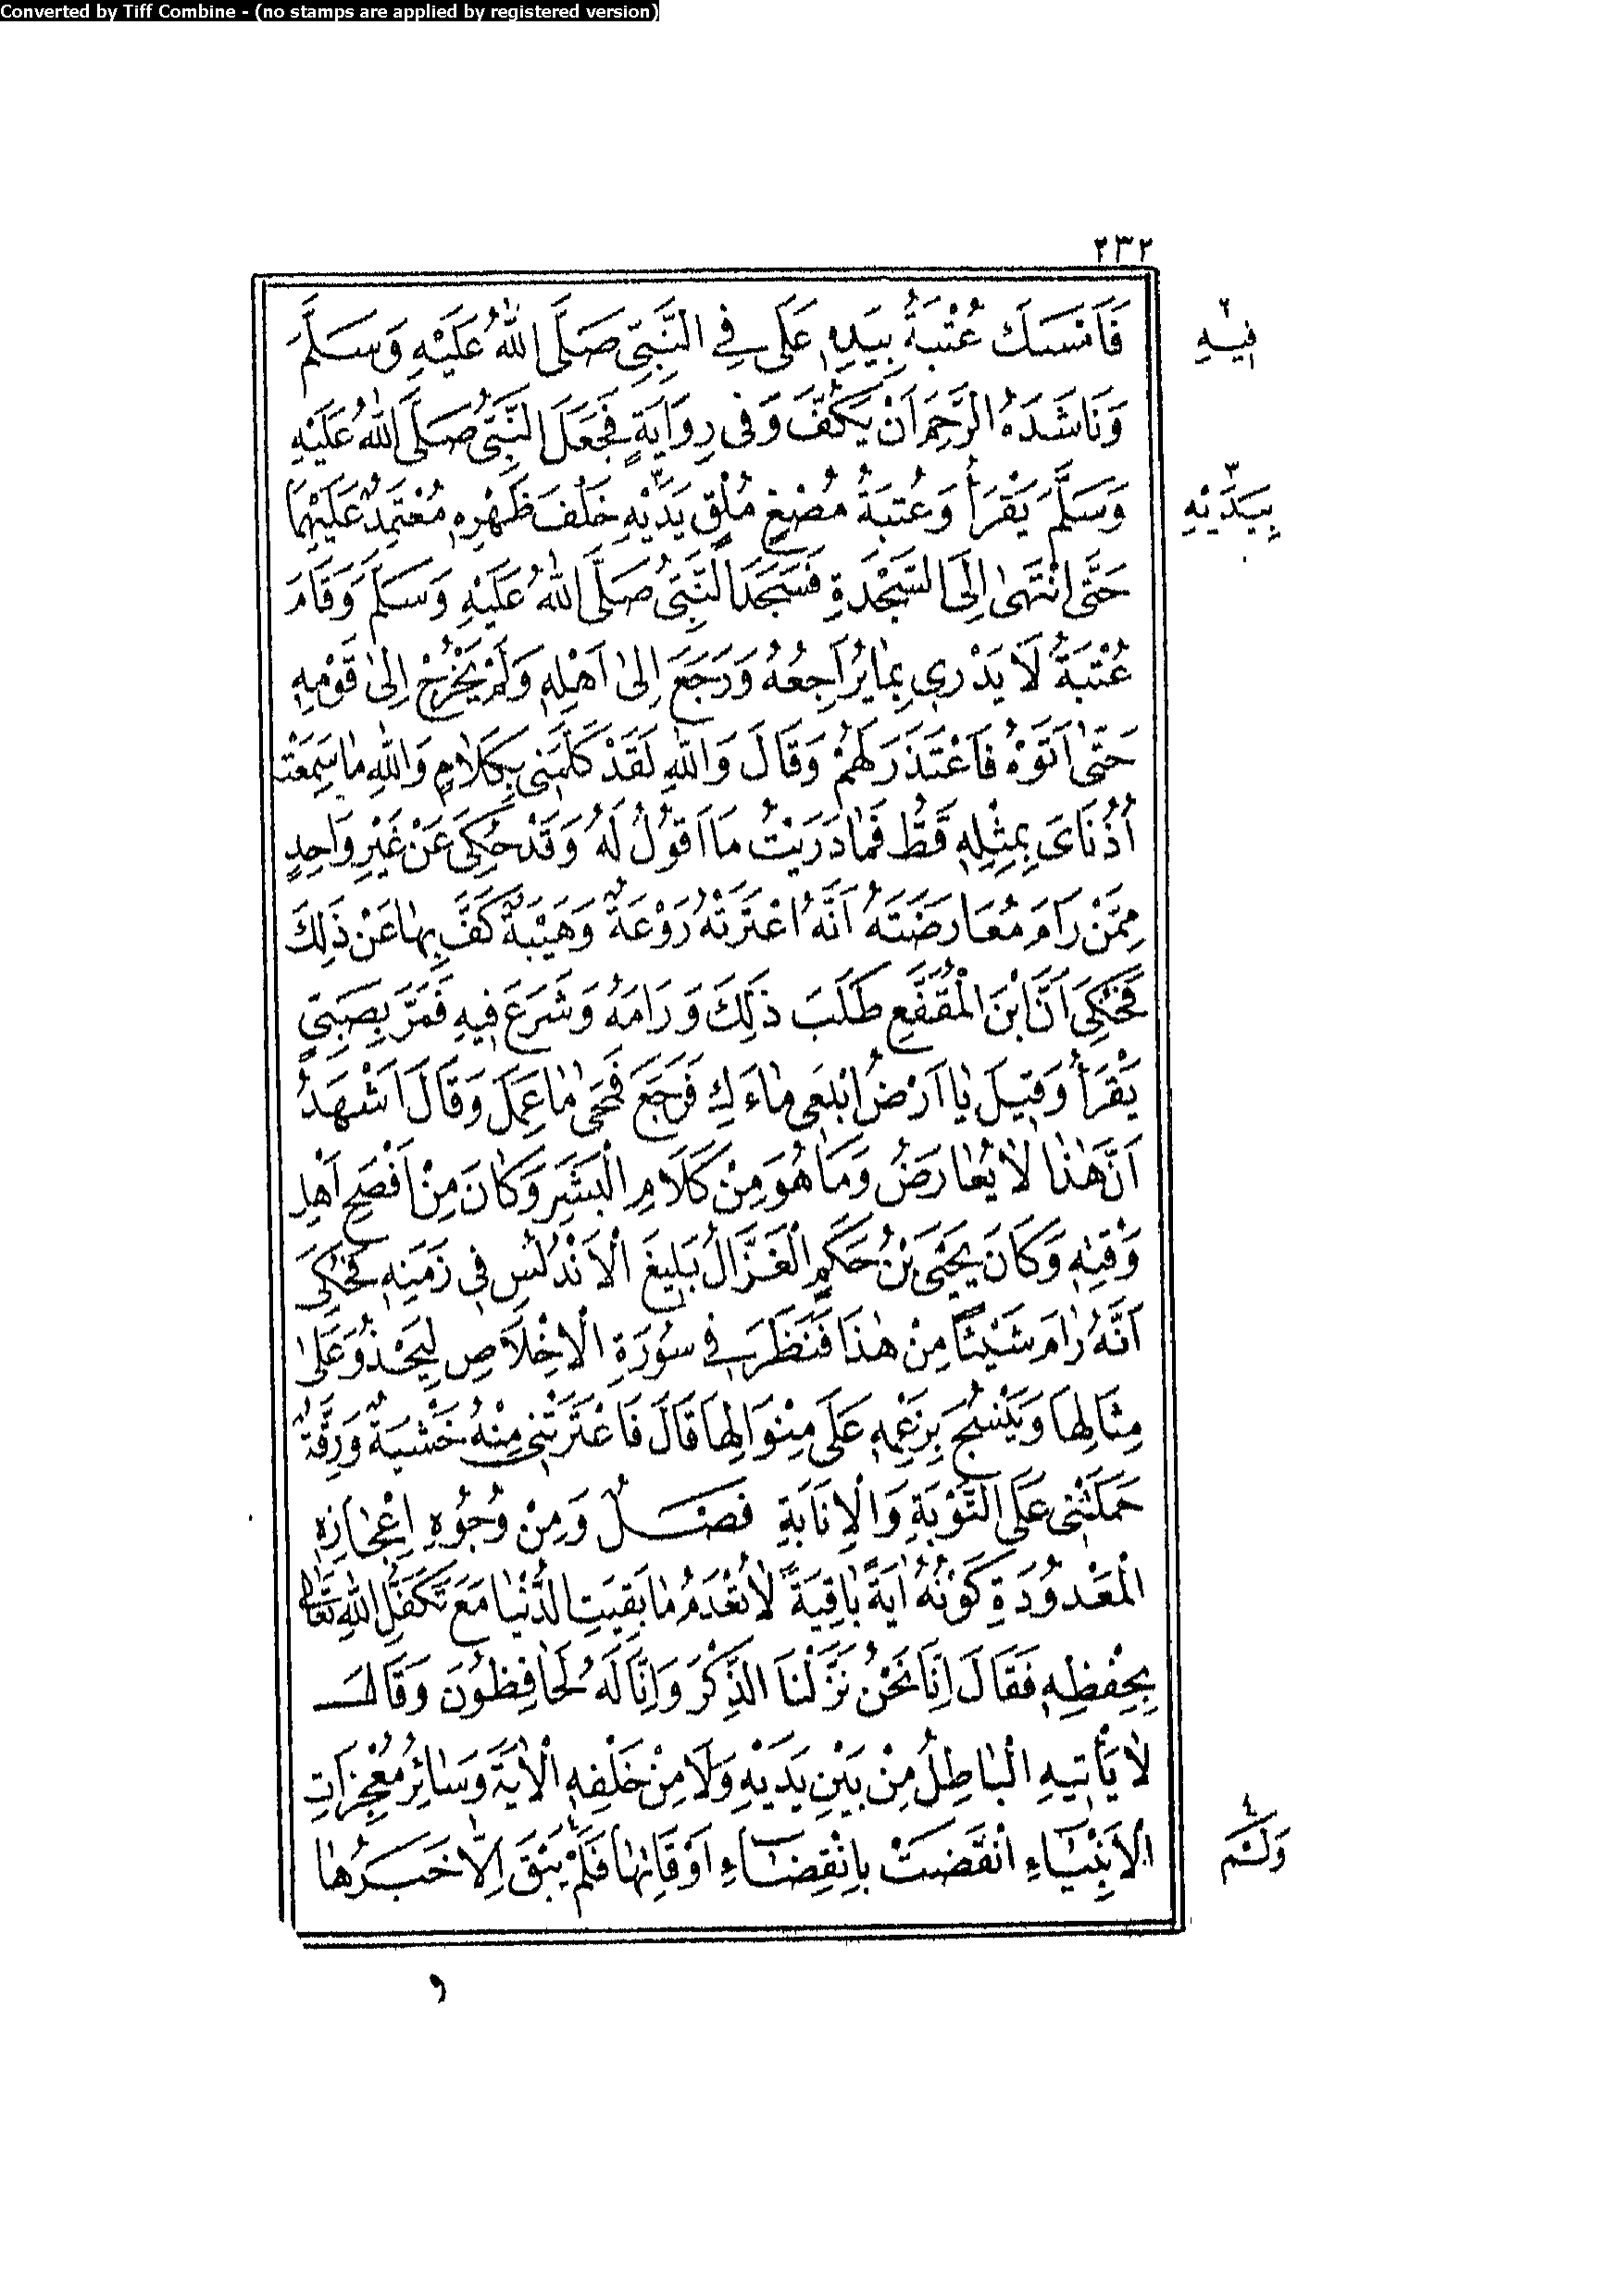 Converted by Tiff Combine - (no stamps are applied by registered version)
٢٣٢
فَاَمْسَكَ عُتْبَةُ بِيَدِهِ عَلَى فِي النَّبِيِّ صَلَّى اللّٰهُ عَلَيْهِ وَسَلَّمَ
٢ فِيهِ
وَنَاشَدَهُ الرَّحِمَ اَنْ يَكُفَّ وَفِى رِوَايَةٍ فَجَعَلَ النَّبِىُّ صَلَّى اللّٰهُ عَلَيْهِ
وَسَلَّمَ يَقْرَأُ وَعُتْبَةُ مُصْغٍ مُلْقٍ يَدَيْهِ خَلْفَ ظَهْرِهِ مُعْتَمِدٌ عَلَيْهِمَا
٣ بِيَدَيْهِ
حَتَّى انْتَهٰى اِلَى السَّجْدَةِ فَسَجَدَ النَّبِىُّ صَلَّى اللّٰهُ عَلَيْهِ وَسَلَّمَ وَقَامَ
عُتْبَةُ لَا يَدْرِي بِمَا يُرَاجِعُهُ وَرَجَعَ اِلىٰ اَهْلِهِ وَلَمْ يَخْرُجْ اِلىٰ قَوْمِهِ
حَتّٰى اَتَوْهُ فَاعْتَذَرَ لَهُمْ وَقَالَ وَاللّٰهِ لَقَدْ كَلَّمَنِى بِكَلَامٍ وَاللّٰهِ مٰا سَمِعَتْ
اُذُنَاىَ بِمِثْلِهِ قَطُّ فَمٰا دَرَيْتُ مَا اَقُولُ لَهُ وَقَدْ حُكِىَ عَنْ غَيْرِ وَاحِدٍ
مِمَّنْ رَامَ مُعَارَضَتَهُ اَنَّهُ اعْتَرَتْهُ رَوْعَةٌ وَهَيْبَةٌ كَفَّ بِهٰا عَنْ ذٰلِكَ
فَحُكِىَ اَنَّ ابْنَ الْمُقَفَّعِ طَلَبَ ذٰلِكَ وَرَامَهُ وَشَرَعَ فِيهِ فَمَرَّ بِصَبِيٍّ
يَقْرَأُ وَقِيلَ يٰا اَرْضُ ابْلَعِى مٰاءَكِ فَرَجَعَ فَمَحٰى مٰا عَمِلَ وَقَالَ اَشْهَدُ
اَنَّ هٰذٰا لٰا يُعٰارَضُ وَمٰا هُوَ مِنْ كَلَامِ الْبَشَرِ وَكٰانَ مِنْ اَفْصَحِ اَهْلِ
وَقْتِهِ وَكَانَ يَحْيَى بْنُ حَكَمٍ الْغَزَّالُ بَلِيغَ الْاَنْدَلُسِ فِى زَمَنِهِ فَحُكِىَ
اَنَّهُ رٰامَ شَيْئًا مِنْ هٰذَا فَنَظَرَ فِي سُورَةِ الْاِخْلَاصِ لِيَحْذُوَ عَلىٰ
مِثَالِهَا وَيَنْسُجَ بِزَعْمِهِ عَلَى مِنْوَالِهَا قَالَ فَاعْتَرَتْنِى مِنْهُ خَشْيَةٌ وَرِقَّةٌ
حَمَلَتْنِى عَلَى التَّوْبَةِ وَالْاِنَابَةِ فَصْلٌ وَمِنْ وُجُوهِ اِعْجٰازِهِ
الْمَعْدُودَةِ كَوْنُهُ اٰيَةً بٰاقِيَةً لٰا تُعْدَمُ مٰا بَقِيَتِ الدُّنْيٰا مَعَ تَكَفُّلِ اللّٰهِ تَعَالٰى
بِحِفْظِهِ فَقَالَ اِنَّا نَحْنُ نَزَّلْنَا الذِّكْرَ وَاِنَّا لَهُ لَحَافِظُونَ وَقَالَ
لٰا يَأْتِيهِ الْبٰاطِلُ مِنْ بَيْنِ يَدَيْهِ وَلَا مِنْ خَلْفِهِ الْاٰيَةَ وَسٰائِرُ مُعْجِزَاتِ
الْاَنْبِيٰاءِ انْقَضَتْ بِانْقِضٰاءِ اَوْقَاتِهٰا فَلَمْ يَبْقَ اِلّٰا خَبَرُهٰا
٤ وَلَمْ
و